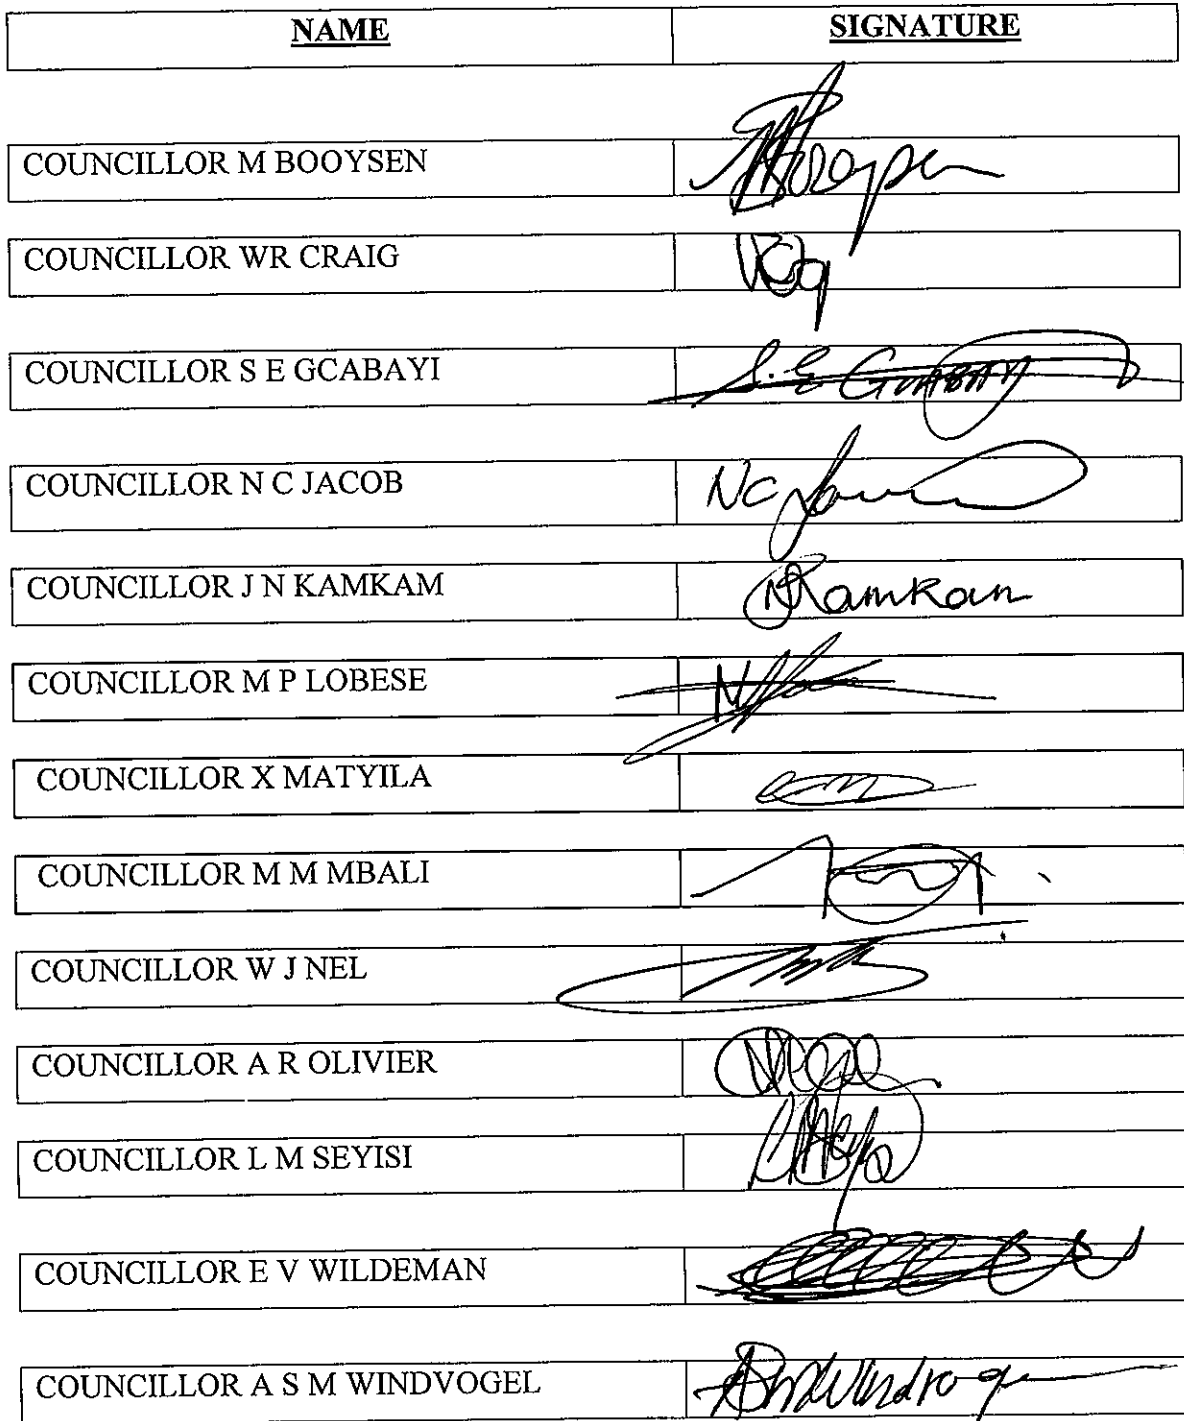 NAME SIGNATURE
COUNCILLOR M BOOYSEN Booysen
COUNCILLOR WR CRAIG
COUNCILLOR S E GCABAYI S.E Gcabayi
COUNCILLOR N C JACOB NC
COUNCILLOR J N KAMKAM Kamkam
COUNCILLOR M P LOBESE
COUNCILLOR X MATYILA
COUNCILLOR M M MBALI
COUNCILLOR W J NEL
COUNCILLOR A R OLIVIER
COUNCILLOR L M SEYISI
COUNCILLOR E V WILDEMAN
COUNCILLOR A S M WINDVOGEL